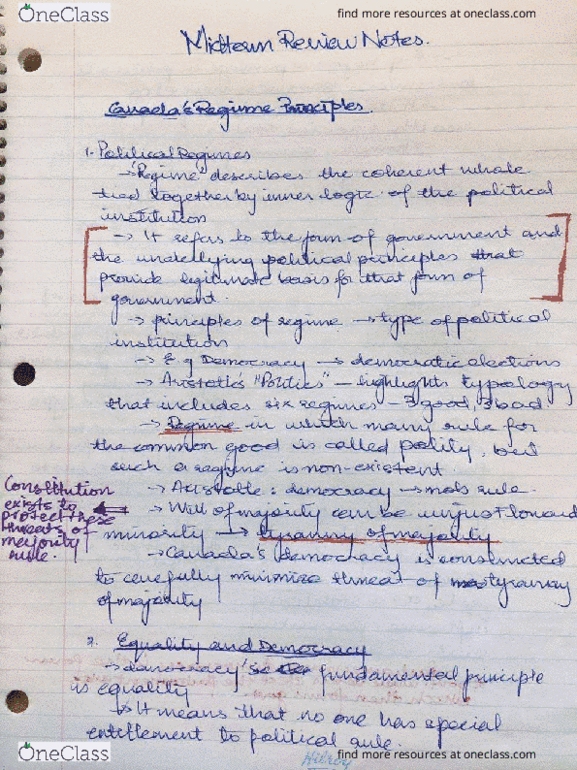 OneClass
find more resources at oneclass.com
Midterm Review Notes.
Canada's Regime Principles.
1. Political Regimes
→ "Regime" describes the coherent whole
tied together by inner logic of the political
institution
→ It refers to the form of government and
the underlying political principles that
provide legitimate basis for that form of
government.
→ principles of regime → type of political
institution
→ E.g Democracy → democratic elections
→ Aristotle's "Politics" — highlights typology
that includes six regimes - 3 good, 3 bad.
→ Regime in which many rule for
the common good is called polity, but
such a regime is non-existent
→ Aristotle: democracy → mob rule.
→ Will of majority can be unjust toward
minority → tyranny of majority
Constitution
exists to
protect these
threats of
majority
rule.
→ Canada's democracy is constructed
to carefully minimize threat of tyranny
of majority
2. Equality and Democracy
→ democracy's fundamental principle
is equality
↳ It means that no one has special
entitlement to political rule.
Hilroy
OneClass
find more resources at oneclass.com